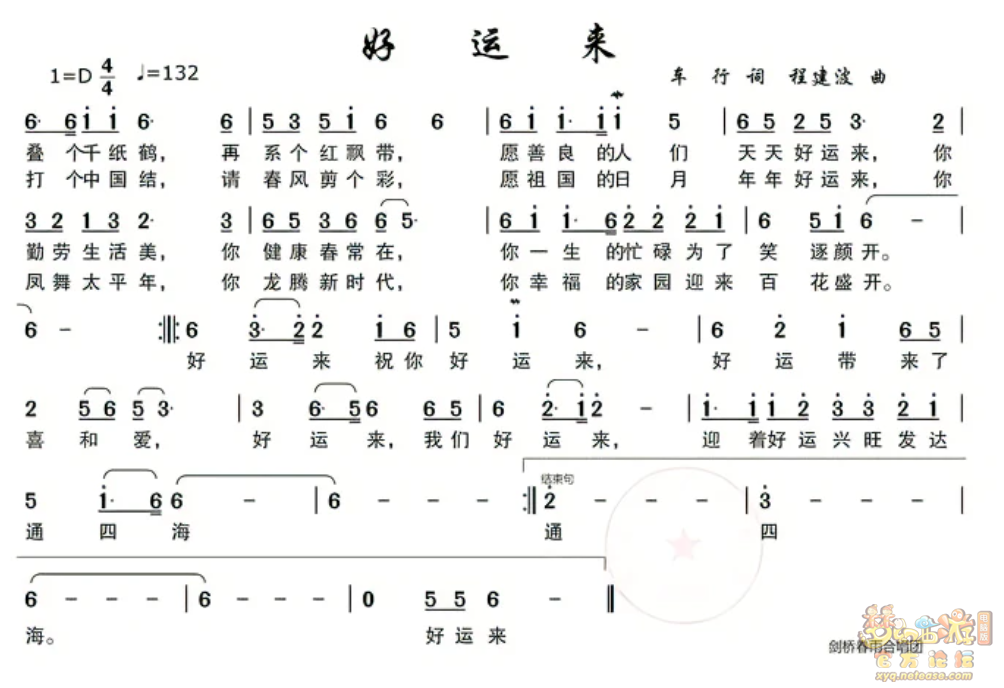 好 运 来
1=D 4/4 ♩=132 车 行 词 程建波 曲
6· 6 i i 6· 6 | 5 3 5 i 6 6 | 6 i i· i i 5 | 6 5 5 2 3· 2 |
叠 个千纸鹤， 再 系个红飘带， 愿善良的人 们 天天好运来，你
打 个中国结， 请 春风剪个彩， 愿祖国的日 月 年年好运来，你
3 2 1 3 2· 3 | 6 5 3 6 6 5· | 6 i i· 6 2 2 2 i | 6 5 i 6 - |
勤劳生活美， 你 健康春常在， 你一生 的忙碌为了 笑 逐颜开。
凤舞太平年， 你 龙腾新时代， 你幸福 的家园迎来 百 花盛开。
6 - :||: 6 3· 2 2 i 6 | 5 i 6 - | 6 2 i 6 5 |
好 运 来 祝你 好 运 来， 好 运 带 来了
2 5 6 5 3· | 3 6· 5 6 6 5 | 6 2· i 2 - | i· i i 2 3 3 2 i |
喜 和 爱， 好 运 来， 我们 好 运 来， 迎 着好运兴旺发达
结束句
5 i· 6 6 - - | 6 - - - :|| 2 - - - | 3 - - - |
通 四 海 通 四
6 - - - | 6 - - - | 0 5 5 6 - ||
海。 好运来
剑桥春雨合唱团
梦幻西游
电脑版
官方论坛
xyq.netease.com